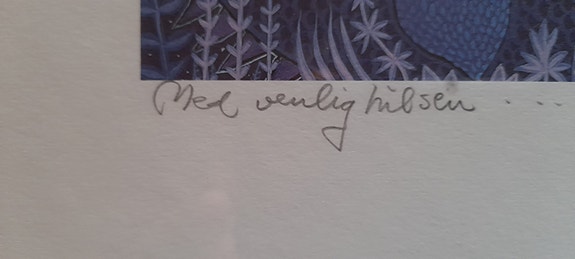 Med venlig hilsen ....